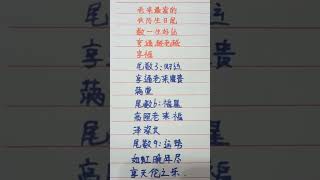 老来最富的
农历生日尾
数一生好运
亨通越老越
享福
尾数3:财运
亨通老来富贵
满堂
尾数6:福星
高照老来福
泽深长
尾数9:运势
如虹晚年尽
享天伦之乐